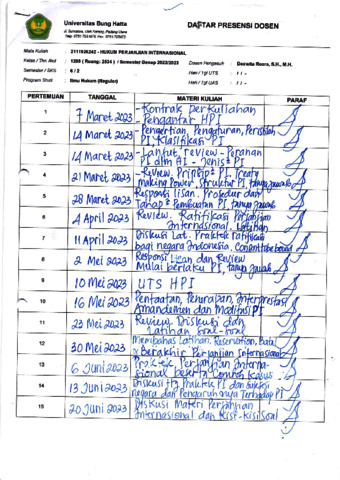 Universitas Bung Hatta
DAFTAR PRESENSI DOSEN
Mata Kuliah : 2111106342 - HUKUM PERJANJIAN INTERNASIONAL
Semester Genap 2022/2023
Dosen Pengasuh : Deswita Rosra, S.H., M.H.
Semester / SKS : 6 / 2
Hari / Tgl UTS : / / -
Program Studi : Ilmu Hukum (Reguler)
Hari / Tgl UAS : / / -
PERTEMUAN TANGGAL MATERI KULIAH PARAF
1 7 Maret 2023 - Kontrak perkuliahan
- Pengantar HPI
2 14 Maret 2023 - Pengertian, Pengaturan, Peristilahan
PI, Klasifikasi PI
3 14 Maret 2023 - Lanjut review - Peranan
PI dlm - Jenis² PI
4 21 Maret 2023 - Review, Prinsip² PI, Treaty
making Power, Struktur PI, tanya jawab
5 28 Maret 2023 Responsi lisan, Prosedur dan
Tahap² Pembuatan PI, tanya jawab
6 4 April 2023 Review, Ratifikasi Perjanjian
Internasional, Latihan
7 11 April 2023 Diskusi Lat. Praktek ratifikasi
bagi negara Indonesia,
8 2 Mei 2023 Responsi Lisan dan Review
Mulai berlaku PI, tanya jawab
9 10 Mei 2023 UTS HPI
10 16 Mei 2023 Pentaatan, Penerapan, Interprestasi
Amandemen dan Modifasi PI
11 23 Mei 2023 Review Diskusi dan
Latihan soal-soal
12 30 Mei 2023 Membahas Latihan, Reservation, Batal
& Berakhir Perjanjian Internasional
13 6 Juni 2023 Praktek Perjanjian Interna-
sional beserta Contoh Kasus
14 13 Juni 2023 Diskusi ttg Praktek PI dan suksesi
negara dan Pengaruhnya Terhadap PI
15 20 Juni 2023 Diskusi Materi Perjanjian
Internasional dan Kisi-kisi Soal